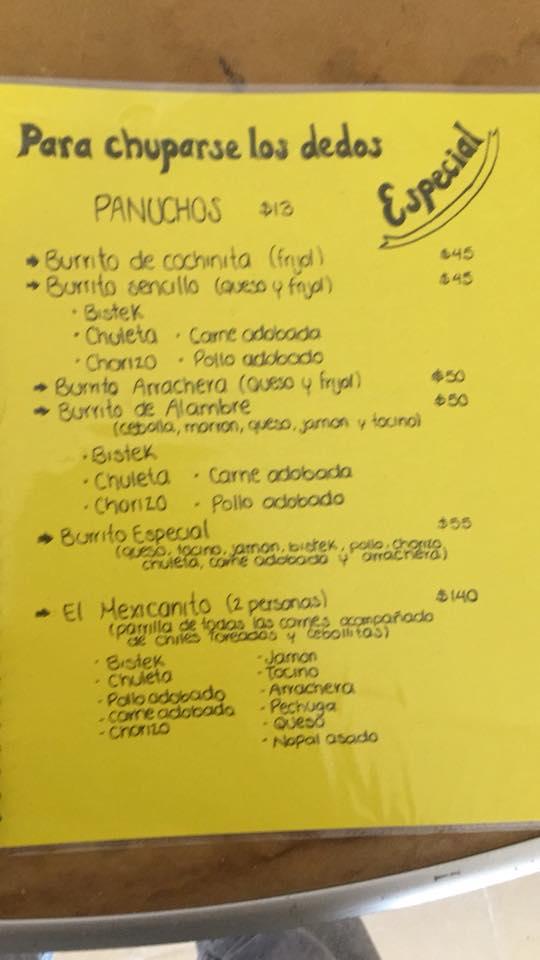 Para chuparse los dedos
Especial
PANUCHOS $13
→ Burrito de cochinita (frijol) $45
→ Burrito sencillo (queso y frijol) $45
· Bistek
· Chuleta · Carne adobada
· Chorizo · Pollo adobado
→ Burrito Arrachera (Queso y frijol) $50
→ Burrito de Alambre $50
(cebolla, morron, queso, jamon y tocino)
· Bistek
· Chuleta · Carne adobada
· Chorizo · Pollo adobado
→ Burrito Especial $55
(queso, tocino, jamon, bistek, pollo, chorizo,
chuleta, carne adobada y arrachera)
→ El Mexicanito (2 personas) $140
(parrilla de todas las carnes acompañado
de chiles toreados y cebollitas)
· Bistek · Jamon
· Chuleta · Tocino
· Pollo adobado · Arrachera
· carne adobada · Pechuga
· Chorizo · Queso
· Nopal asado